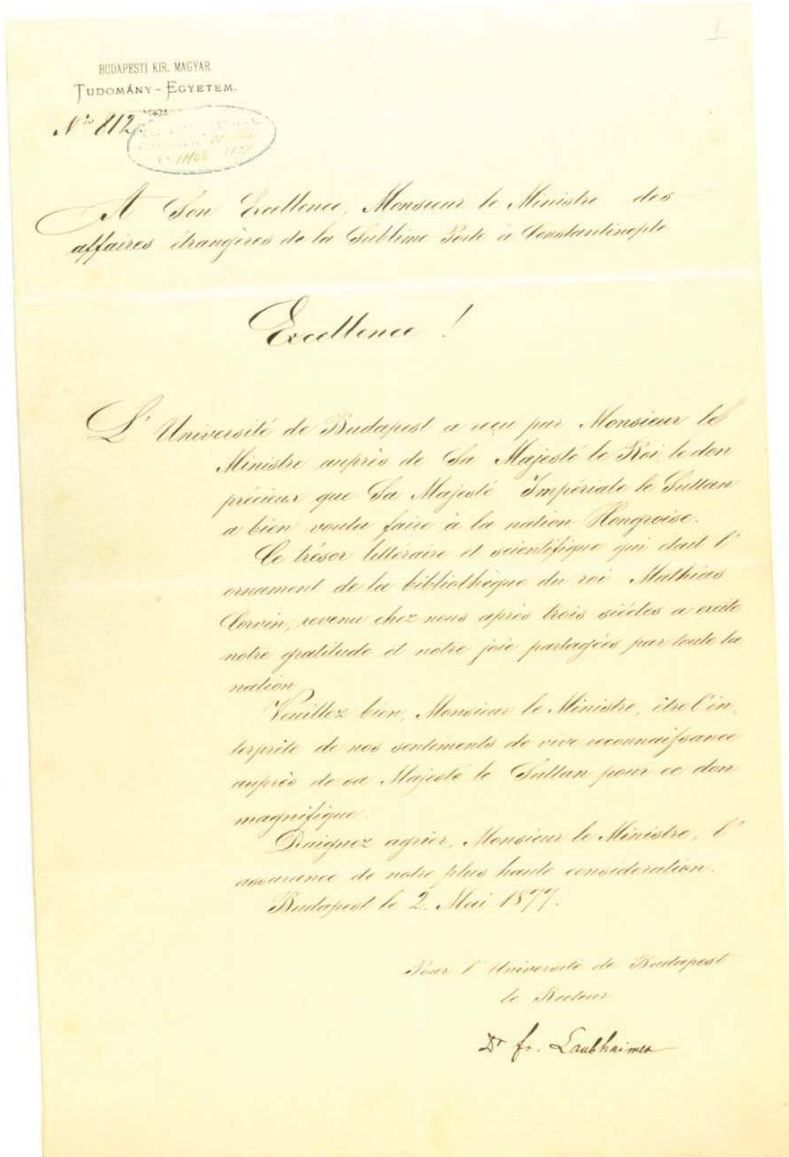 1
BUDAPESTI KIR. MAGYAR
TUDOMÁNY-EGYETEM.
Nº 812
1877
A Son Excellence, Monsieur le Ministre des
affaires étrangères de la Sublime Porte à Constantinople
Excellence !
L'Université de Budapest a reçu par Monsieur le
Ministre auprès de Sa Majesté le Roi le don
précieux que Sa Majesté Impériale le Sultan
a bien voulu faire à la nation Hongroise.
Ce trésor littéraire et scientifique qui était l'
ornament de la bibliothèque du roi Mathias
Corvin, revenu chez nous après trois siécles a excité
notre gratitude et notre joie partagées par toute la
nation
Veuillez bien, Monsieur le Ministre, être l'in,
terprète de nos sentiments de vive reconnaissance
auprès de sa Majesté le Sultan pour ce don
magnifique.
Daignez agréer, Monsieur le Ministre, l'
assurance de notre plus haute consideration.
Budapest le 2. Mai 1877.
Pour l'Université de Budapest
le Recteur
Dr fr. Laubhaimer